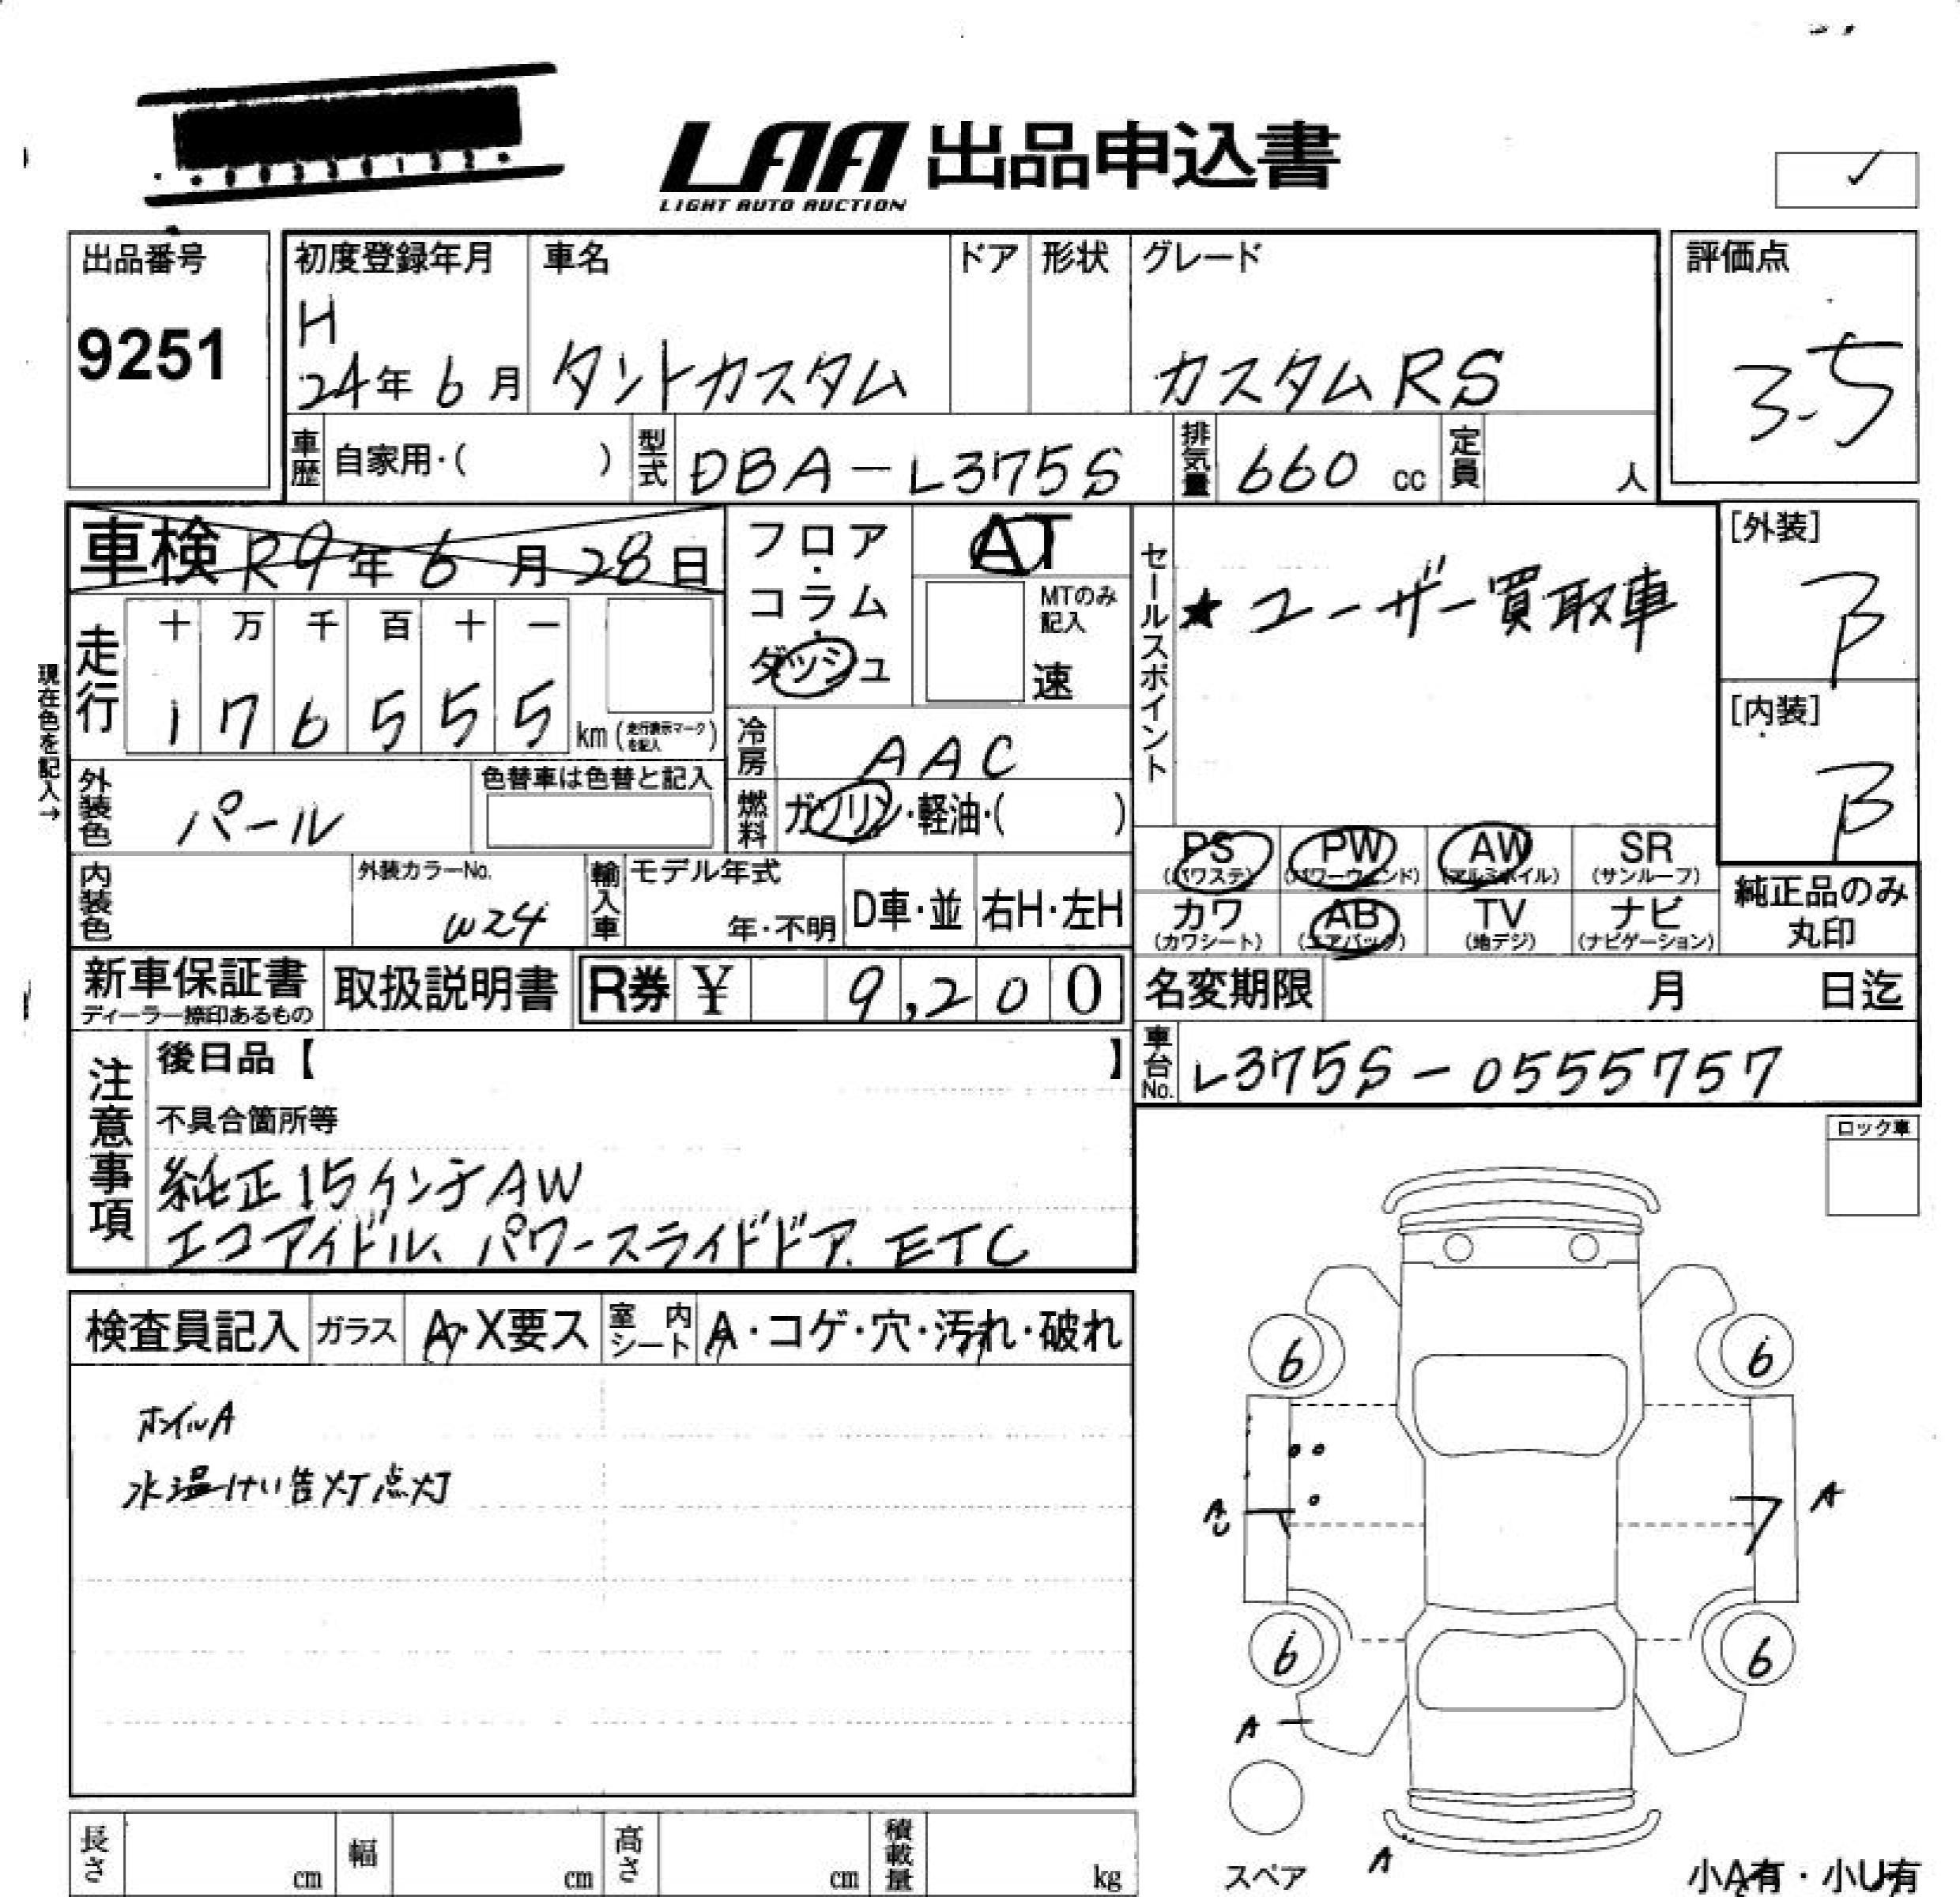 LAA 出品申込書
LIGHT AUTO AUCTION
出品番号
9251
初度登録年月
H
24年 6月
車名
タントカスタム
ドア
形状
グレード
カスタム RS
評価点
3.5
車歴 自家用・( )
型式 DBA-L375S
排気量 660 cc
定員 人
車検 R9年 6月 28日
フロア・コラム・ダッシュ
AT
MTのみ記入
速
セールスポイント
★ユーザー買取車
[外装]
B
[内装]
B
現在色を記入→
走行
十 万 千 百 十 一
1 7 6 5 5 5 km (走行表示マークを記入)
冷房 AAC
燃料 ガソリン・軽油・( )
外装色 パール
色替車は色替と記入
内装色
外装カラーNo.
W24
輸入車
モデル年式
年・不明
D車・並
右H・左H
PS (パワステ)
PW (パワーウィンド)
AW (アルミホイル)
SR (サンルーフ)
カワ (カワシート)
AB (エアバック)
TV (地デジ)
ナビ (ナビゲーション)
純正品のみ丸印
新車保証書
ディーラー捺印あるもの
取扱説明書
R券 ¥ 9,200
名変期限 月 日迄
車台No. L375S-0555757
注意事項
後日品【 】
不具合箇所等
純正15インチAW
エコアイドル、パワースライドドア、ETC
ロック車
検査員記入
ガラス A・X要ス
室内シート A・コゲ・穴・汚れ・破れ
ホイルA
水温けい告灯点灯
6 6
A U
A
6 6
A
スペア
A
小A有・小U有
長さ cm
幅 cm
高さ cm
積載量 kg